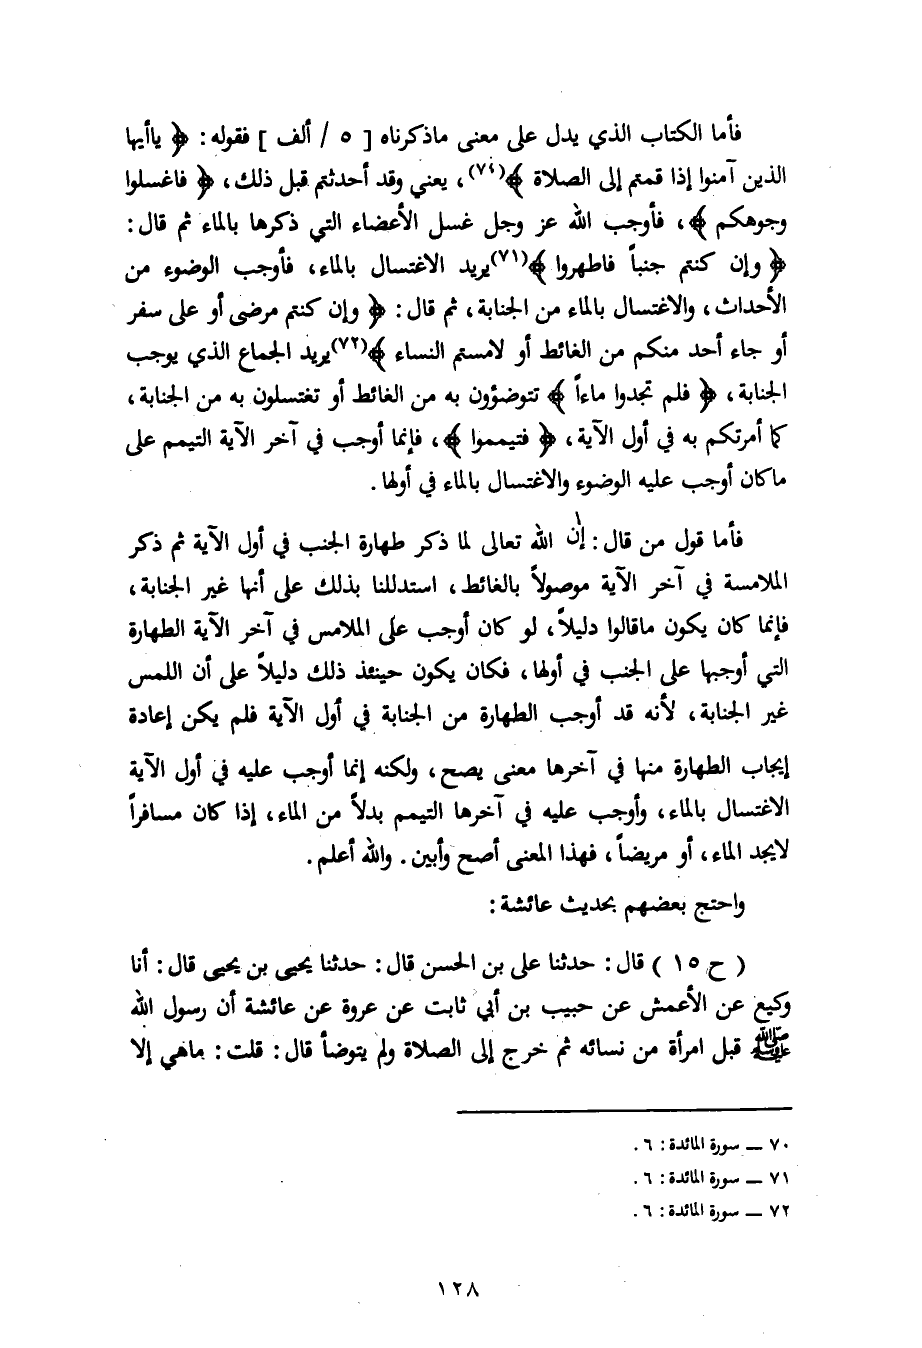 فأما الكتاب الذي يدل على معنى ماذكرناه [ ٥ / ألف ] فقوله : ﴿ ياأيها
الذين آمنوا إذا قمتم إلى الصلاة ﴾(٧٤) ، يعني وقد أحدثتم قبل ذلك ، ﴿ فاغسلوا
وجوهكم ﴾ ، فأوجب الله عز وجل غسل الأعضاء التي ذكرها بالماء ثم قال :
﴿ وإن كنتم جنباً فاطهروا ﴾(٧١)يريد الاغتسال بالماء ، فأوجب الوضوء من
الأحداث ، والاغتسال بالماء من الجنابة ، ثم قال : ﴿ وإن كنتم مرضى أو على سفر
أو جاء أحد منكم من الغائط أو لامستم النساء ﴾(٧٢)يريد الجماع الذي يوجب
الجنابة ، ﴿ فلم تجدوا ماءاً ﴾ تتوضؤون به من الغائط أو تغتسلون به من الجنابة ،
كما أمرتكم به في أول الآية ، ﴿ فتيمموا ﴾ ، فإنما أوجب في آخر الآية التيمم على
ماكان أوجب عليه الوضوء والاغتسال بالماء في أولها .
فأما قول من قال : إن الله تعالى لما ذكر طهارة الجنب في أول الآية ثم ذكر
الملامسة في آخر الآية موصولاً بالغائط ، استدللنا بذلك على أنها غير الجنابة ،
فإنما كان يكون ماقالوا دليلاً ، لو كان أوجب على الملامس في آخر الآية الطهارة
التي أوجبها على الجنب في أولها ، فكان يكون حينئذ ذلك دليلاً على أن اللمس
غير الجنابة ، لأنه قد أوجب الطهارة من الجنابة في أول الآية فلم يكن إعادة
إيجاب الطهارة منها في آخرها معنى يصح ، ولكنه إنما أوجب عليه في أول الآية
الاغتسال بالماء ، وأوجب عليه في آخرها التيمم بدلاً من الماء ، إذا كان مسافراً
لايجد الماء ، أو مريضاً ، فهذا المعنى أصح وأبين . والله أعلم .
واحتج بعضهم بحديث عائشة :
( ح ١٥ ) قال : حدثنا على بن الحسن قال : حدثنا يحيى بن يحيى قال : أنا
وكيع عن الأعمش عن حبيب بن أبي ثابت عن عروة عن عائشة أن رسول الله
ﷺ قبل امرأة من نسائه ثم خرج إلى الصلاة ولم يتوضأ قال : قلت : ماهي إلا
٧٠ ــ سورة المائدة : ٦ .
٧١ ــ سورة المائدة : ٦ .
٧٢ ــ سورة المائدة : ٦ .
١٢٨